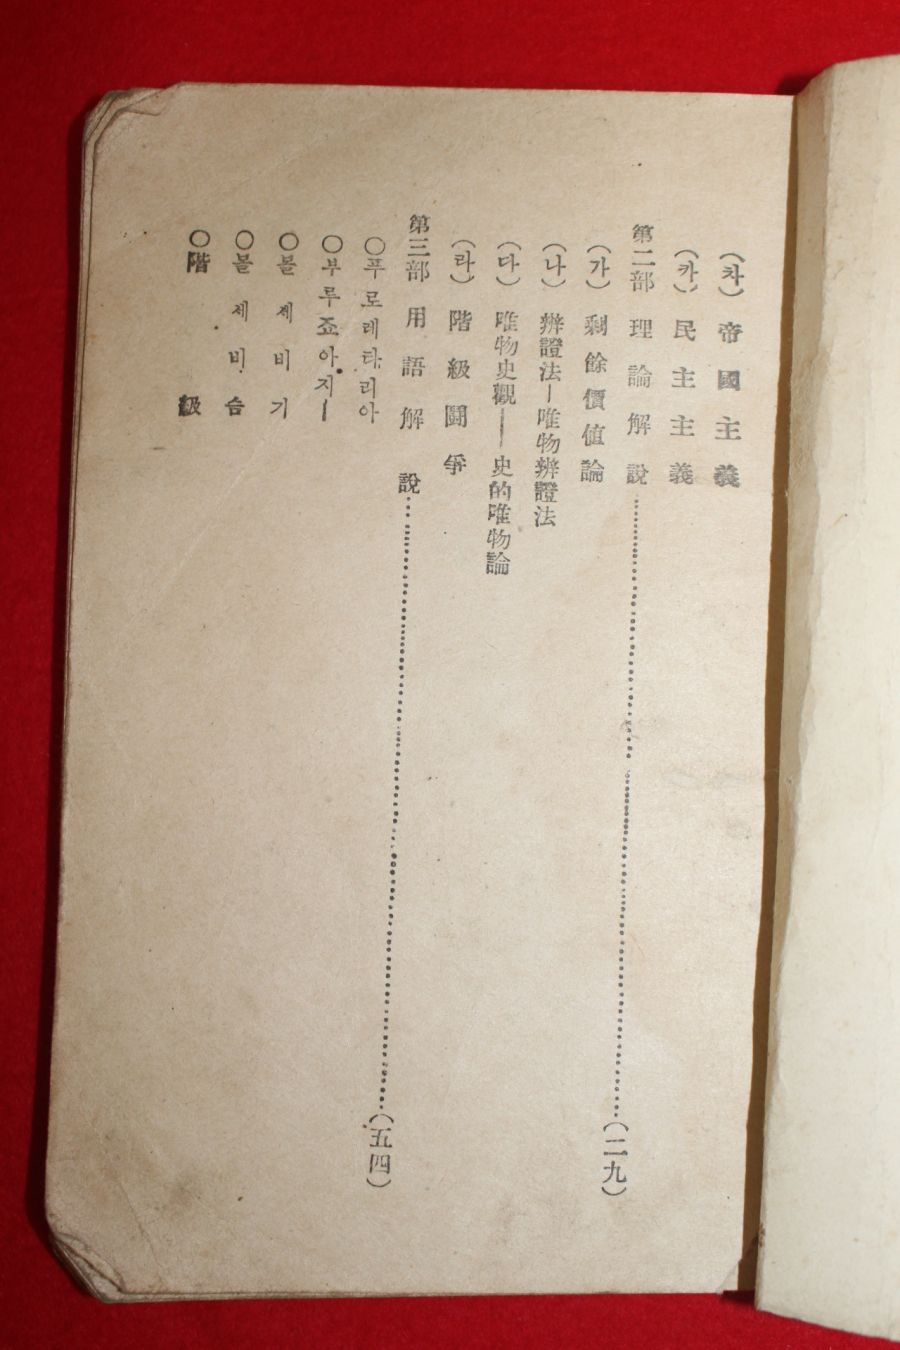 (차) 帝國主義
(카) 民主主義
第二部 理論解說……………(二九)
(가) 剩餘價値論
(나) 辨證法—唯物辨證法
(다) 唯物史觀——史的唯物論
(라) 階級鬪爭
第三部 用語解說……………(五四)
○푸로레타리아
○부루죠아지ー
○볼세비기
○볼세비슴
○階級